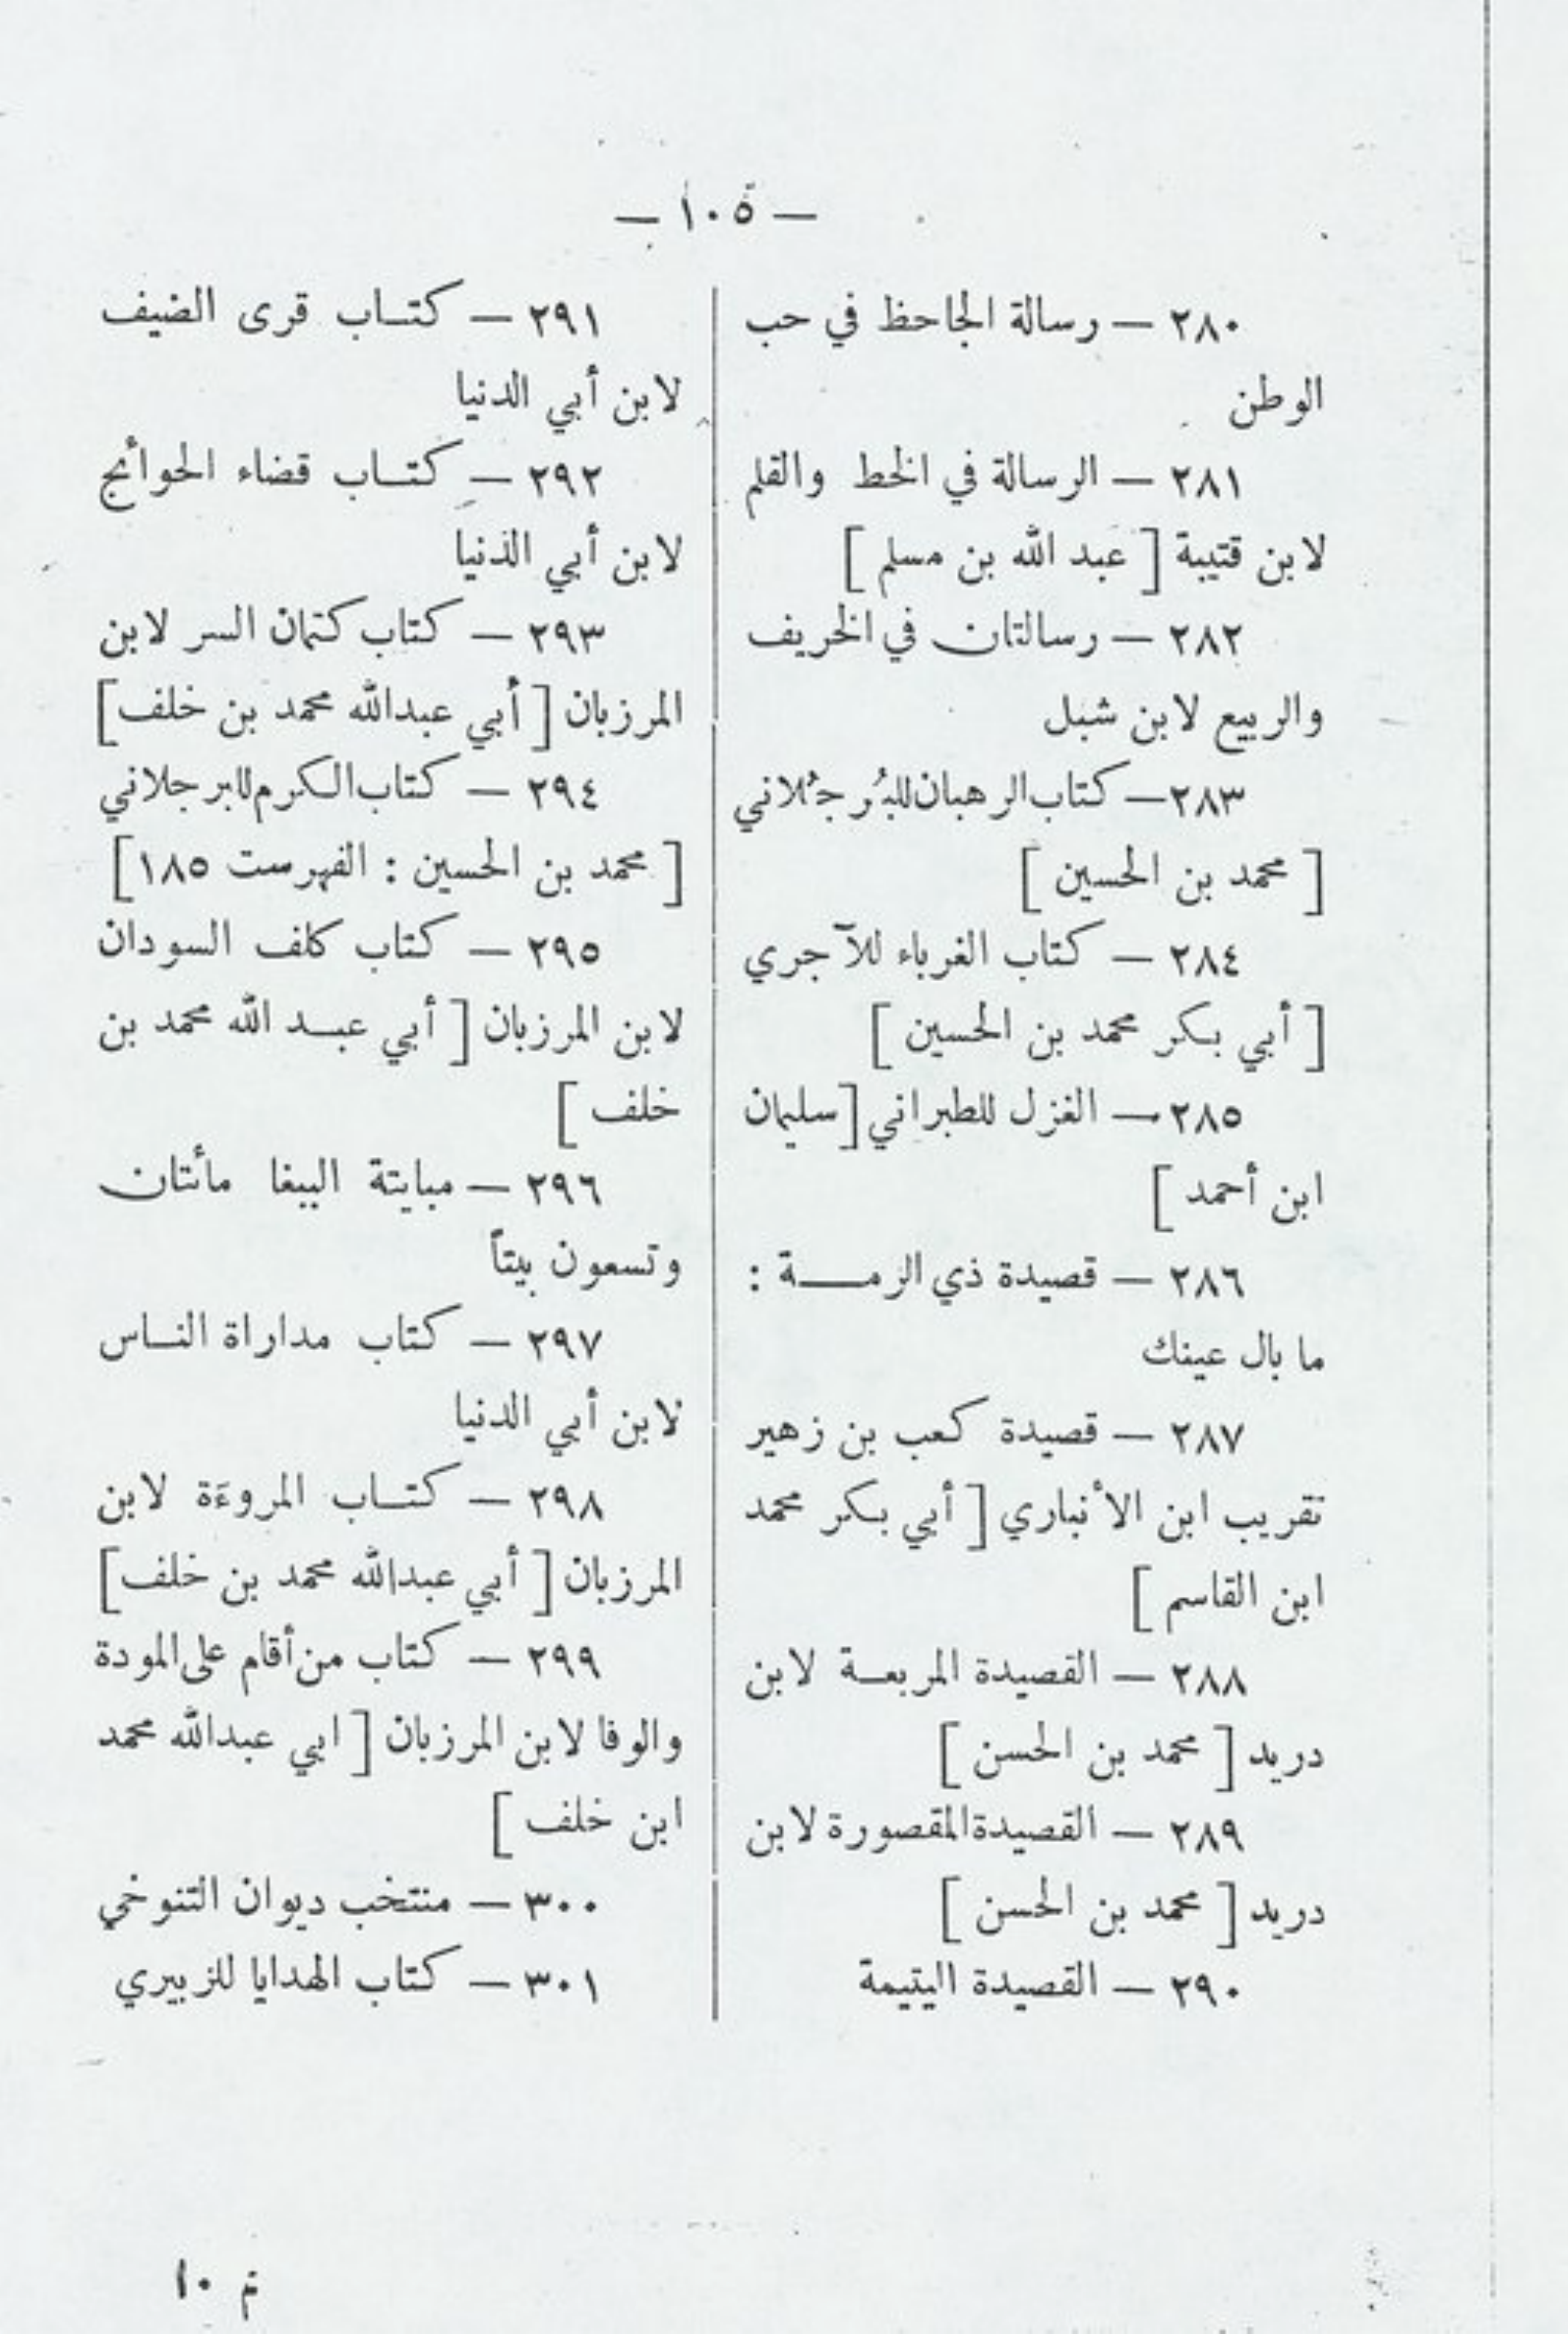 — ١٠٥ —
٢٨٠ — رسالة الجاحظ في حب
الوطن
٢٨١ — الرسالة في الخط والقلم
لابن قتيبة [ عبد الله بن مسلم ]
٢٨٢ — رسالتان في الخريف
والربيع لابن شبل
٢٨٣ — كتاب الرهبان للبُرجُلاني
[ محمد بن الحسين ]
٢٨٤ — كتاب الغرباء للآجري
[ أبي بكر محمد بن الحسين ]
٢٨٥ — الغزل للطبراني [ سليمان
ابن أحمد ]
٢٨٦ — قصيدة ذي الرمـــة :
ما بال عينك
٢٨٧ — قصيدة كعب بن زهير
تقريب ابن الأنباري [ أبي بكر محمد
ابن القاسم ]
٢٨٨ — القصيدة المربعـة لابن
دريد [ محمد بن الحسن ]
٢٨٩ — القصيدة المقصورة لابن
دريد [ محمد بن الحسن ]
٢٩٠ — القصيدة اليتيمة
٢٩١ — كتـاب قرى الضيف
لابن أبي الدنيا
٢٩٢ — كتـاب قضاء الحوائج
لابن أبي الدنيا
٢٩٣ — كتاب كتمان السر لابن
المرزبان [ أبي عبدالله محمد بن خلف ]
٢٩٤ — كتاب الكرم للبرجلاني
[ محمد بن الحسين : الفهرست ١٨٥ ]
٢٩٥ — كتاب كلف السودان
لابن المرزبان [ أبي عبـد الله محمد بن
خلف ]
٢٩٦ — مبايتة الببغا مائتان
وتسعون بيتاً
٢٩٧ — كتاب مداراة النـاس
لابن أبي الدنيا
٢٩٨ — كتـاب المروءَة لابن
المرزبان [ أبي عبدالله محمد بن خلف ]
٢٩٩ — كتاب من أقام على المودة
والوفا لابن المرزبان [ ابي عبدالله محمد
ابن خلف ]
٣٠٠ — منتخب ديوان التنوخي
٣٠١ — كتاب الهدايا للزبيري
م ١٠